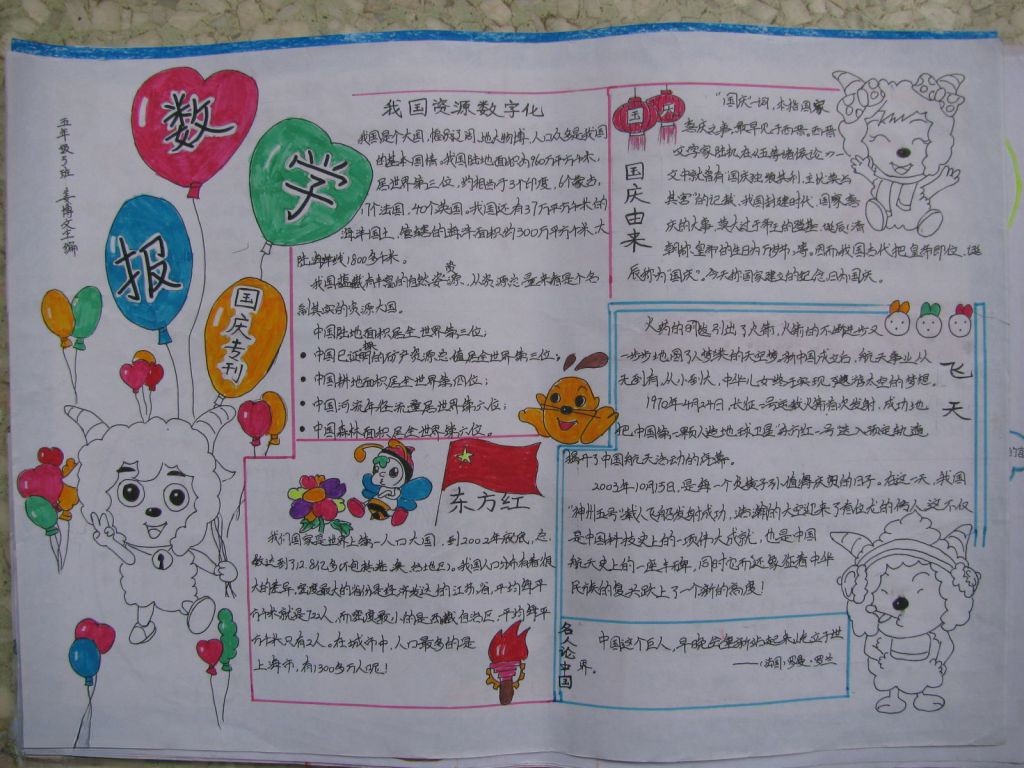 数
学
报
国庆专刊
五年级5班
我国资源数字化
我国是个大国,幅员辽阔,地大物博,人口众多是我国
的基本国情。我国陆地面积为960万平方千米,
居世界第三位,约相当于3个印度,6个蒙古,
17个法国,40个英国。我国还有37万平方千米的
海洋国土,管辖的海洋面积约300万平方千米,大
陆海岸线1800多千米。
我国蕴藏有丰富的自然资源,从资源总量来看是个名
副其实的资源大国。
中国陆地面积居全世界第三位;
• 中国已证实的矿产资源总值居全世界第三位。
• 中国耕地面积居全世界第四位;
• 中国河流年径流量居世界第六位;
• 中国森林面积居全世界第六位。
东方红
我们国家是世界上第一人口大国,到2002年祝底,总
数达到了12.8亿多(不包括港、澳、台地区)。我国人口分布有着很
大的差异,密度最大的省份是经济发达的江苏省,平均每平
方千米就是722人,而密度最小的是西藏自治区,平均每平
方千米只有2人。在城市中,人口最多的是
上海市,有1300多万人呢!
国庆
国庆由来
“国庆”一词,本指国家
喜庆之事,最早见于西晋。西晋
文字家陆机在《五等诸侯论》一
文中就曾有“国庆独飨其利,主忧莫与
其害”的记载、我国封建时代、国家喜
庆的大事,莫大过于帝王的登基、诞辰(清
朝称皇帝的生日为万岁)等。因而我国古代把皇帝即位、诞
辰称为“国庆”。今天称国家建立的纪念日为国庆。
飞天
火药的问题引出了火箭,火箭的不断进步又
一步步地圆了人梦寐的天空梦。新中国成立后,航天事业从
无到有,从小到大,中华儿女终于实现了遨游太空的梦想。
1970年4月24日,长征一号运载火箭首次发射,成功地
把中国第一颗人造地球卫星东方红一号送入预定轨道
揭开了中国航天活动的序幕。
2003年10月15日,是每一个炎黄子孙值得庆贺的日子。在这一天,我国
“神州五号”载人飞船发射成功,浩瀚的太空迎来了首位龙的传人,这不仅
是中国科技史上的一项伟大成就,也是中国
航天史上的一座丰碑,同时它听还象征着中华
民族的复兴跃上了一个新的高度!
名人论中国
中国这个巨人,早晚会重新站起来屹立于世
界。
——(法国)罗曼·罗兰